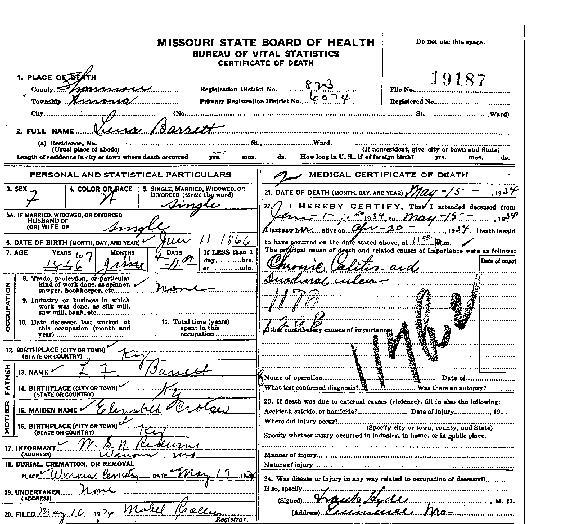 MISSOURI STATE BOARD OF HEALTH
BUREAU OF VITAL STATISTICS
CERTIFICATE OF DEATH
Do not use this space.
1. PLACE OF DEATH
County Shannon Registration District No. 823 File No. 19187
Township Primary Registration District No. 6074 Registered No.
City (No. St. Ward)
2. FULL NAME Barrett
(a) Residence, No. St. Ward.
(Usual place of abode) (If nonresident, give city or town and State)
Length of residence in city or town where death occurred yrs. mos. ds. How long in U. S., if of foreign birth? yrs. mos. ds.
PERSONAL AND STATISTICAL PARTICULARS
3. SEX 4. COLOR OR RACE 5. SINGLE, MARRIED, WIDOWED, OR DIVORCED (write the word)
F W Single
5A. IF MARRIED, WIDOWED, OR DIVORCED
HUSBAND OF
(OR) WIFE OF Single
6. DATE OF BIRTH (MONTH, DAY, AND YEAR) 11 1866
7. AGE YEARS MONTHS DAYS If LESS than 1
67
OCCUPATION
8. Trade, profession, or particular
kind of work done, as spinner,
sawyer, bookkeeper, etc. None
9. Industry or business in which
work was done, as silk mill,
saw mill, bank, etc.
10. Date deceased last worked at
this occupation (month and
year)
11. Total time (years)
spent in this
occupation
12. BIRTHPLACE (CITY OR TOWN)
(STATE OR COUNTRY) Ky
FATHER
13. NAME Barrett
14. BIRTHPLACE (CITY OR TOWN)
(STATE OR COUNTRY) Ky
MOTHER
15. MAIDEN NAME Elizabeth
16. BIRTHPLACE (CITY OR TOWN)
(STATE OR COUNTRY) Ky
17. INFORMANT
(ADDRESS) Mo
18. BURIAL, CREMATION, OR REMOVAL
PLACE Cemetery DATE May 17
19. UNDERTAKER None
(ADDRESS)
20. FILED May 16, 1934 Mabel
Registrar.
2 MEDICAL CERTIFICATE OF DEATH
21. DATE OF DEATH (MONTH, DAY, AND YEAR) May - 15 - 1934
22. I HEREBY CERTIFY, That I attended deceased from
Jan - 1 - 1934, to May - 15 - 1934
I last saw h alive on Apr - 30 - 1934 Death is said
to have occurred on the date stated above, at m.
The principal cause of death and related causes of importance were as follows:
Date of onset
Chronic Colitis and
Duodenal ulcer
117B
Other contributory causes of importance:
117B
Name of operation Date of
What test confirmed diagnosis? Was there an autopsy?
23. If death was due to external causes (violence), fill in also the following:
Accident, suicide, or homicide? Date of injury , 19
Where did injury occur?
(Specify city or town, county, and State)
Specify whether injury occurred in industry, in home, or in public place.
Manner of injury
Nature of injury
24. Was disease or injury in any way related to occupation of deceased?
If so, specify
(Signed) Frank Hyde M. D.
(Address) Mo